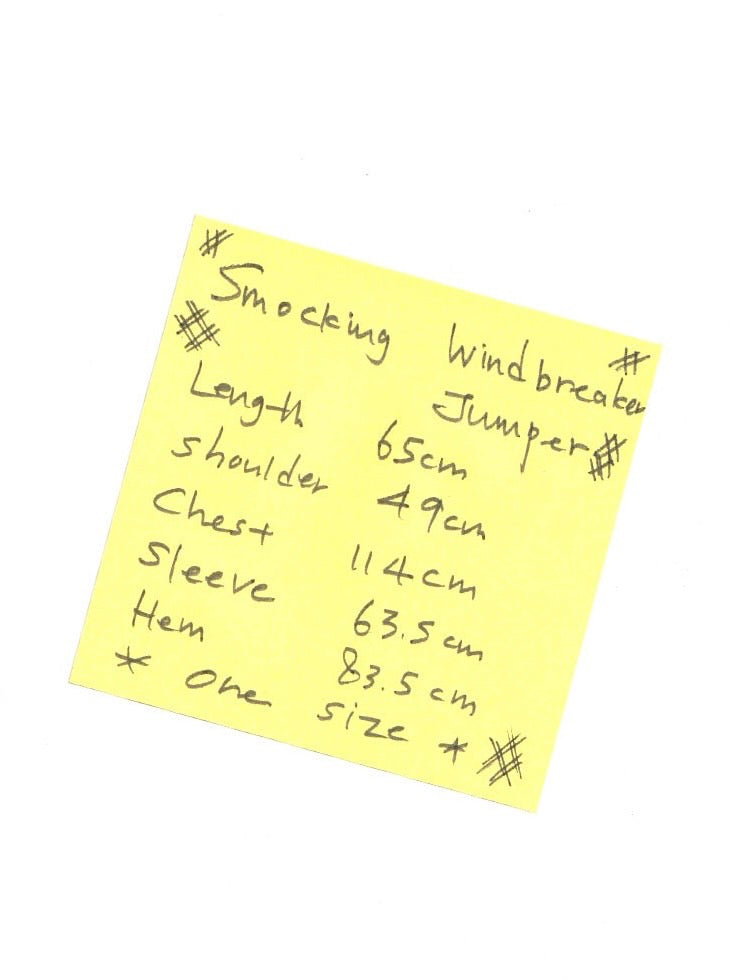 Smocking Windbreaker
Jumper
Length 65cm
shoulder 49cm
Chest 114cm
Sleeve 63.5cm
Hem 83.5cm
* one size *